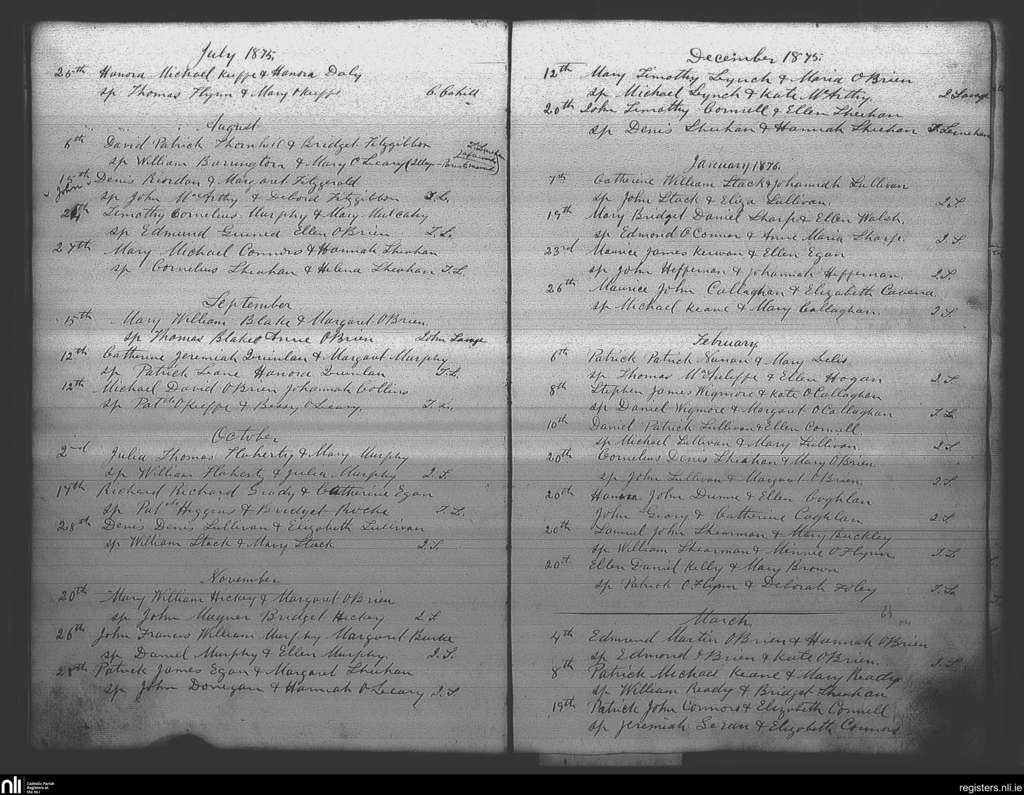 July 1875.
25th Honora Michael Keeffe & Honora Daly
sp Thomas Flynn & Mary O'Keeffe C. Cahill
August
6th David Patrick Thornhill & Bridget Fitzgibbon
sp William Barrington & Mary O'Leary
15th Denis Riordan & Margaret Fitzgerald
John
sp John McArthy & Debord Fitzgibbon T.L.
Timothy Cornelius Murphy & Mary Mulcahy
sp Edmund Ellen O'Brien T.L.
27th Mary Michael Connors & Hannah Sheehan
sp Cornelius Sheahan & Helena Sheahan T.L
September
15th Mary William Blake & Margaret O'Brien.
sp Thomas Blake Annie O'Brien John Savage
12th Catherine Jeremiah Quinlan & Margaret Murphy
sp Patrick Leane Hanora Quinlan T.L.
12th Michael David O'Brien Johannah Collins
sp Patck O'Keeffe & Bessy O'Leary. T.L.
October
2nd Julia Thomas Floherty & Mary Murphy
sp William Floherty & Julia Murphy J.S.
17th Richard Richard Grady & Catherine Egan
sp Patck Higgens & Bridget Roche T.L.
28th Denis Denis Sullivan & Elizabeth Sullivan
sp William Stack & Mary Stack J.S.
November
20th Mary William Hickey & Margaret O'Brien
sp John Magner Bridget Hickey J.S
26th John Francis William Murphy Margaret Burke
sp Daniel Murphy & Ellen Murphy. J.S.
28th Patrick James Egan & Margaret Sheehan
sp John Donegan & Hannah O'Leary J.S
December 1875.
12th Mary Timothy Lynch & Maria O'Brien
sp Michael Lynch & Kate McArthy J. Savage
20th John Timothy Connell & Ellen Sheehan
sp Denis Sheehan & Hannah Sheehan T. Lenehan
January 1876.
7th Catherine William Stack & Johannah Sullivan
sp John Stack & Eliza Sullivan. J.S
19th Mary Bridget Daniel Sharpe & Ellen Walsh.
sp Edmond O'Connor & Anne Maria Sharpe. J.S
23rd Maurice James Kerwan & Ellen Egan
sp John Heffernan & Johannah Heffernan. J.S.
26th Maurice John Callaghan & Elizabeth
sp Michael Keane & Mary Callaghan. J.S
February
6th Patrick Patrick Nunan & Mary
sp Thomas McAuliffe & Ellen Hogan J.S.
8th Stephen James Wigmore & Kate O'Callaghan
sp Daniel Wigmore & Margaret O'Callaghan T.L
10th Daniel Patrick Sullivan & Ellen Connell.
sp Michael Sullivan & Mary Sullivan. J.S
20th Cornelius Denis Sheahan & Mary O'Brien.
sp John Sullivan & Margaret O'Brien. J.S.
20th Hanora John Dunne & Ellen Coghlan
John Geary & Catherine Coghlan J.S
20th Samuel John Shearman & Mary Buckley
sp William Shearman & Minnie O'Flynn T.L
20th Ellen Daniel Kelly & Mary Brown
sp Patrick O'Flynn & Deborah Foley T.L.
March.
4th Edmund Martin O'Brien & Hannah O'Brien
sp Edmond O'Brien & Kate O'Brien. J.S
8th Patrick Michael Keane & Mary Ready
sp William Ready & Bridget Sheahan
19th Patrick John Connors & Elizabeth Connell
sp Jeremiah & Elizabeth Connors
nli
Catholic Parish
Registers at
the NLI
registers.nli.ie